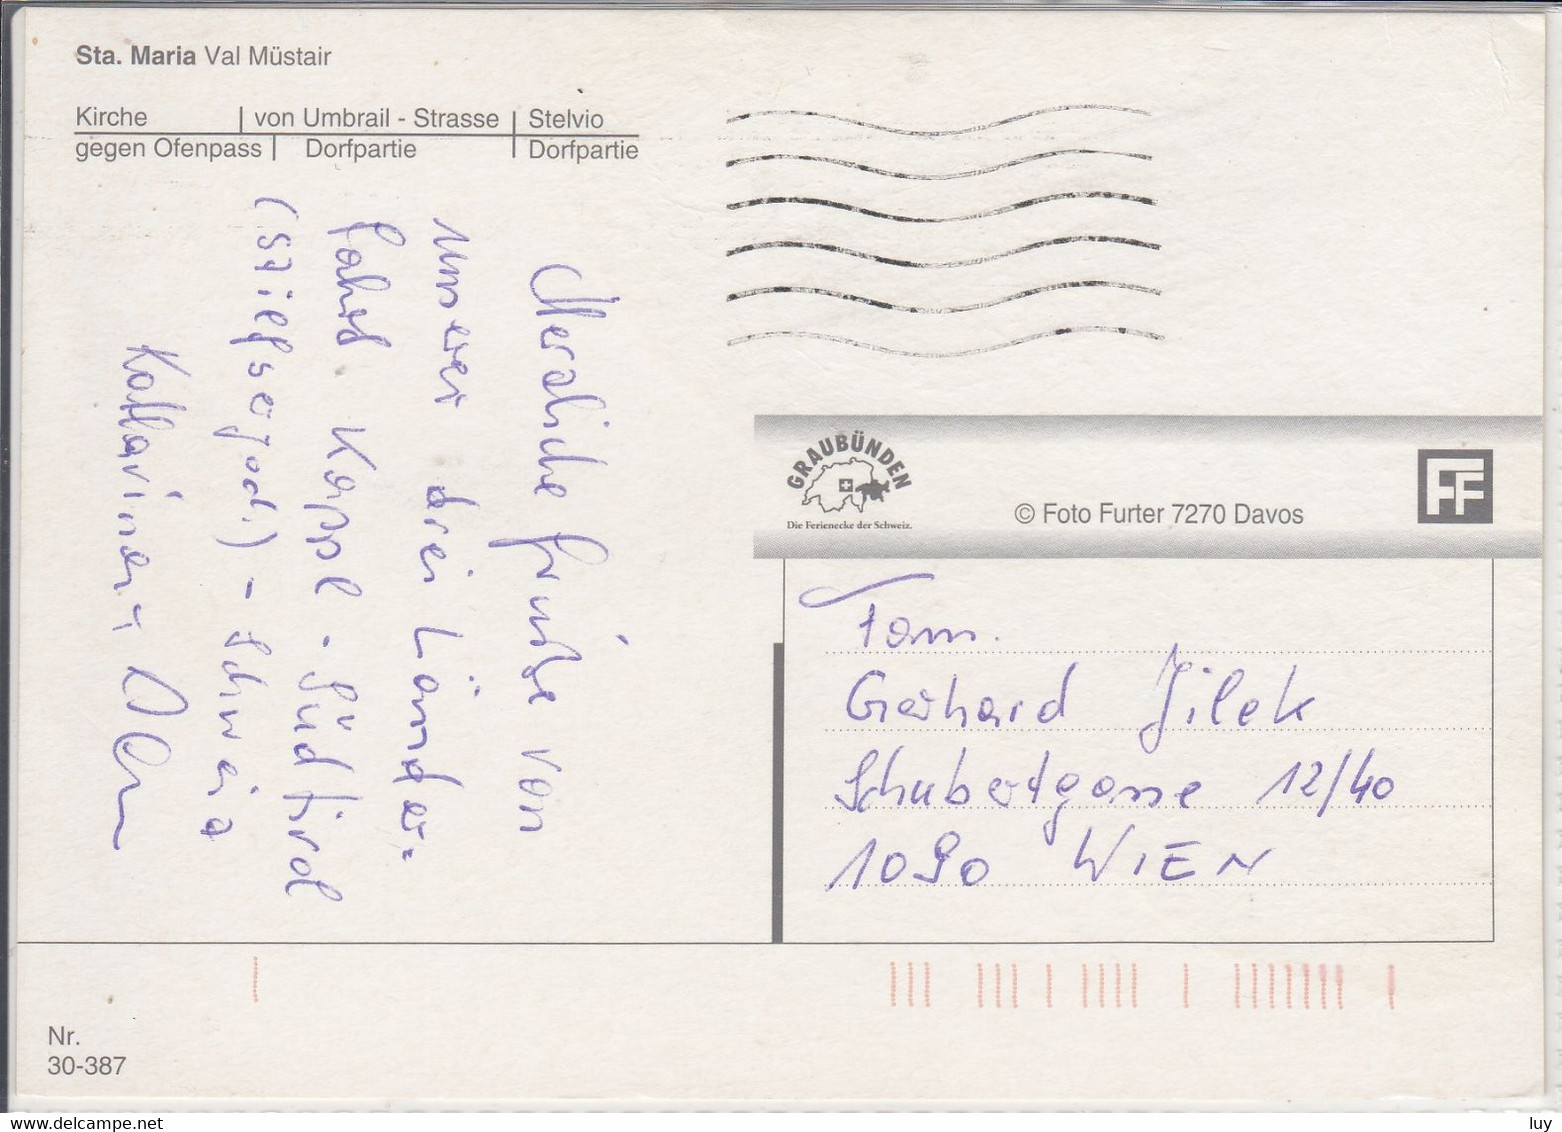 Sta. Maria Val Müstair
Kirche | von Umbrail - Strasse | Stelvio
gegen Ofenpass | Dorfpartie | Dorfpartie
Herzliche Grüße von
unserer drei Länder-
fahrt Kappl - Südtirol
(Stilfserjoch) - Schweiz
Katharina +
GRAUBÜNDEN
Die Ferienecke der Schweiz.
© Foto Furter 7270 Davos
FF
Fam.
Gerhard Jilek
Schubertgasse 12/40
1090 WIEN
Nr.
30-387
www.delcampe.net
luy